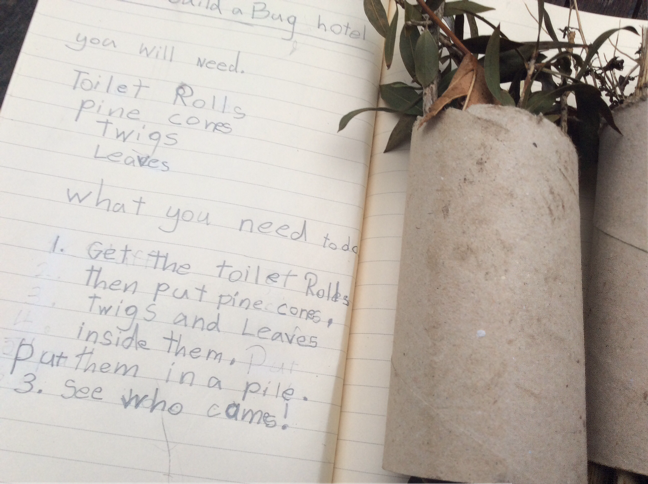 Build a Bug hotel
you will need.
Toilet Rolls
pine cones
Twigs
Leaves
what you need to do
1. Get the toilet Rolls
then put pine cones,
twigs and Leaves
inside them. Put
Put them in a pile.
3. see who came!